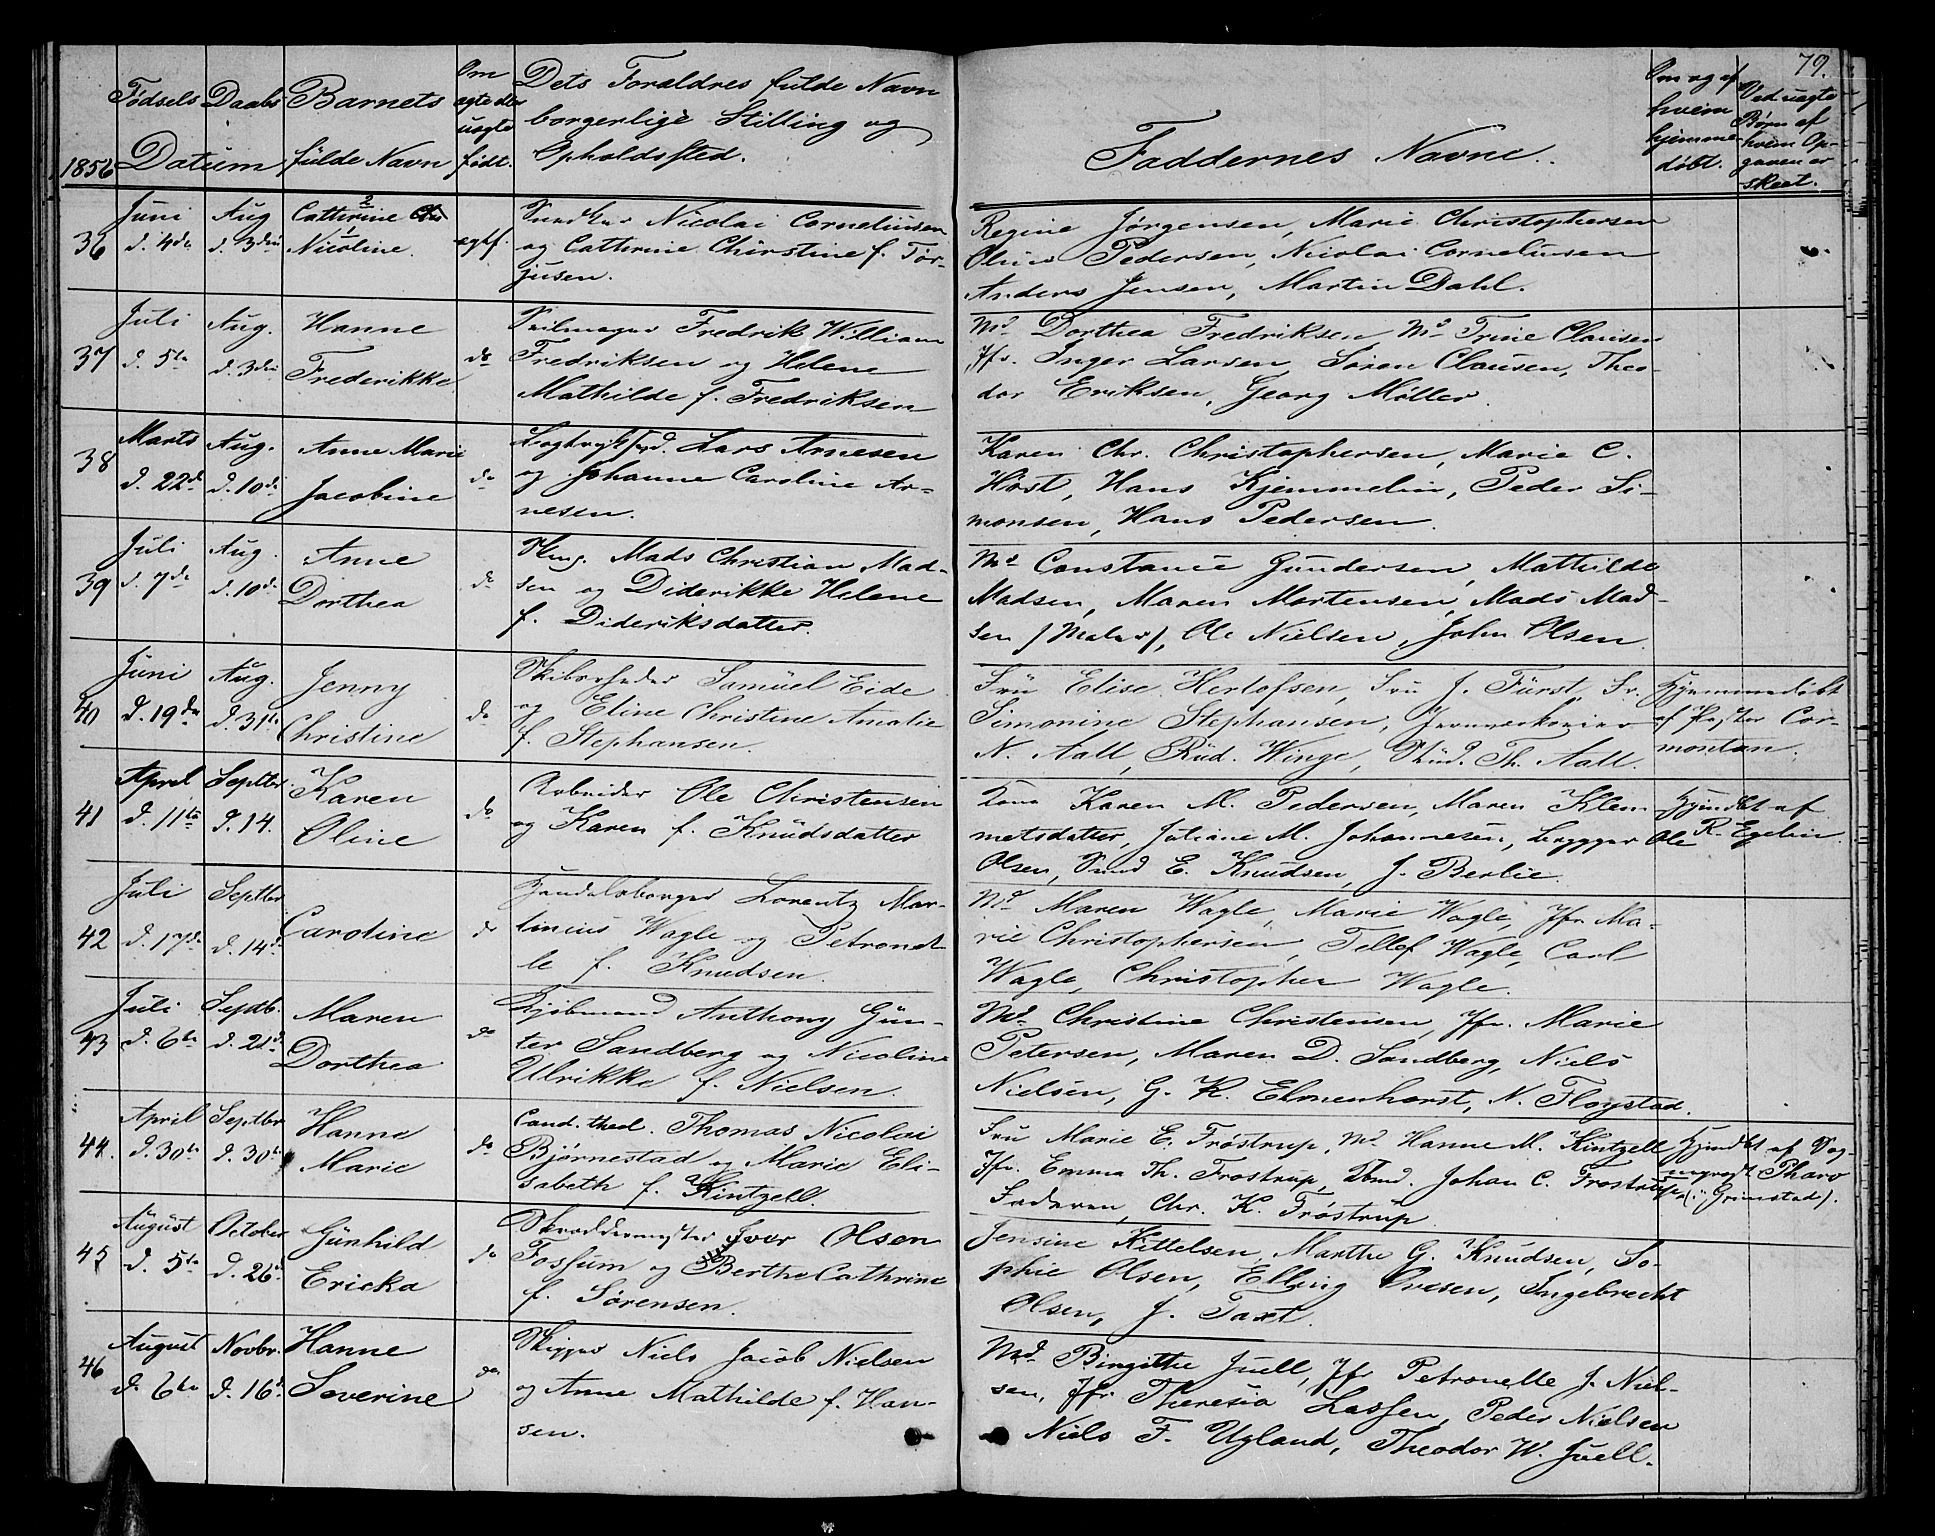 79.
1856
Fødsels Datum
Daabs Datum
Barnets fulde Navn
Om ægte eller uægte født.
Dets Forældres fulde Navn
borgerlige Stilling og
Opholdssted.
Faddernes Navne.
Om og af hvem hjemme døbt.
Ved uægte Børn af hvem Opgaven er skeet.
36
Juni d. 4de
Aug d. 3die
Catherine
Nicoline.
ægtf.
Snedker Nicolai Corneliusen
og Catherine Christine f. Tør-
jusen.
Regine Jørgensen, Marie Christophersen
Pedersen, Nicolai Corneliusen
Anders Jensen, Martin Dahl.
37
Juli d. 5te
Aug. d. 3die
Hanne
Frederikke
do
Seilmager Fredrik William
Fredriksen og Helene
Mathilde f. Fredriksen
Md Dorthea Fredriksen, Md Trine Clausen
Jfr. Inger Larsen, Søren Clausen, Theo-
dor Eriksen, Georg Møller.
38
Marts d. 22de
Aug. d. 10de
Anne Marie
Jacobine
do
Lars Arnesen
og Johanne Caroline Ar-
nesen.
Karen Chr. Christophersen, Marie C.
Høst, Hans Kjemmelin, Peder Si-
monsen, Hans Pedersen.
39
Juli d. 7de
Aug. d. 10de
Anne
Dorthea
do
Mads Christian Mad-
sen og Diderikke Helene
f. Dideriksdatter.
Md Constance Gundersen, Mathilde
Madsen, Maren Mortensen, Mads Mad-
sen /Maler/, Ole Nielsen, John Olsen.
40
Juni d. 19de
Aug. d. 31te
Jenny
Christine
do
Skibsrheder Samuel Eide
og Eline Christine Amalie
f. Stephansen.
Fru Elise Herlofsen, Fru J. Fürst, Fr.
Simonine Stephansen, Jernværkseier
N. Aall, Rud. Winge, Stud. Th. Aall.
Hjemmedøbt
af Pastor Cor-
montan.
41
April d. 11te
Septbr. d. 14.
Karen
Oline
do
Arbeider Ole Christensen
og Karen f. Knudsdatter
Kone Karen M. Pedersen, Maren Klem-
metsdatter, Juliane M. Johannesen, Brygger Ole
Olsen, Smed E. Knudsen, J. Berlie.
Hjmdbt af
R. Egelin.
42
Juli d. 17de
Septbr. d. 14de
Caroline
do
Handelsborger Lorentz Mar-
tinius Wagle og Petronel-
le f. Knudsen.
Md Maren Wagle, Marie Wagle, Jfr. Ma-
rie Christophersen, Tellef Wagle, Carl
Wagle, Christopher Wagle.
43
Juli d. 6te
Septb. d. 21de
Maren
Dorthea
do
Kjøbmand Anthony Gün-
ter Sandberg og Nicoline
Ulrikke f. Nielsen.
Md. Christine Christensen, Jfr. Marie
Petersen, Maren D. Sandberg, Niels
Nielsen, G. K. Elmenhorst, N. Fløystad.
44.
April d. 30te
Septbr d. 30te
Hanne
Marie
do
Cand. theol. Thomas Nicolai
Bjørnestad og Marie Eli-
sabeth f. Kintzell.
Fru Marie E. Frøstrup, Md. Hanne M. Kintzell
Jfr. Emma Th. Frostrup, Johan C. Frostrup
Faderen, Chr. K. Frøstrup.
Hjmdbt af Sog-
nepræst Tharo
(i Grimstad).
45
August d. 5te
October d. 26de
Gunhild
Ericka
do
Skræddermester Iver Olsen
Fossum og Berthe Cathrine
f. Sørensen.
Jensine Kittelsen, Marthe G. Knudsen, So-
phie Olsen, Elling Ovesen, Ingebrecht
Olsen, J. Taxt.
46
August d. 6te
Novbr. d. 16de
Hanne
Severine
do
Skipper Niels Jacob Nielsen
og Anne Mathilde f. Han-
sen.
Md. Birgitte Juell, Jfr Petronelle J. Niel-
sen, Jfr Theresia Lassen, Peder Nielsen
Niels F. Ugland, Theodor W. Juell.